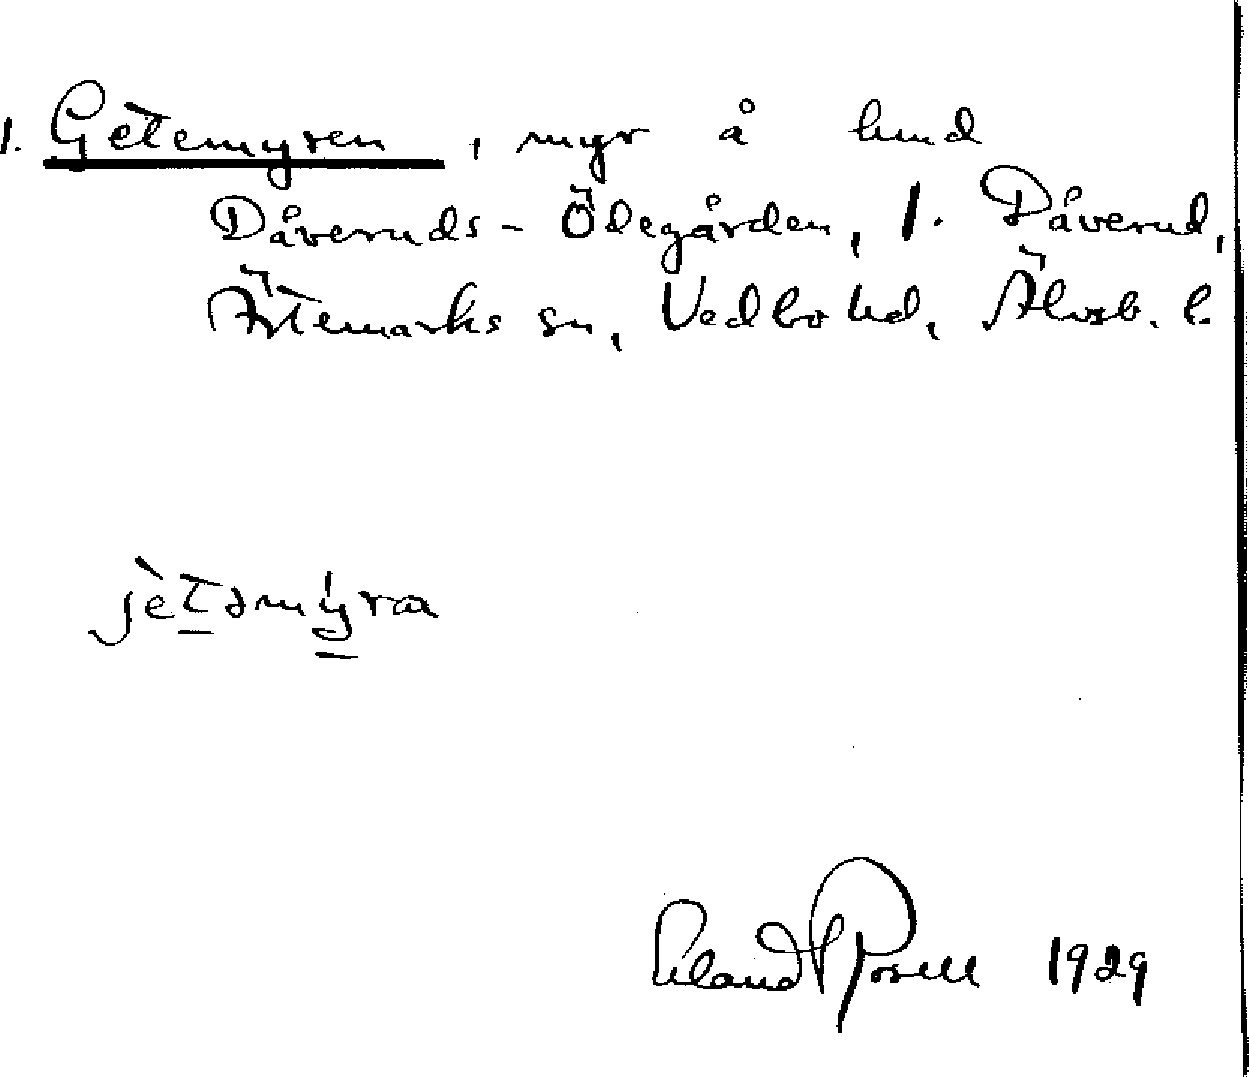 1. Getemyren, myr å hmd
Dåveruds-Ödegården, 1. Dåverud,
Ärtemarks sn, Vedbo hd, Älvsb. l.
jètəmy̍ra
Erland Rosell 1929